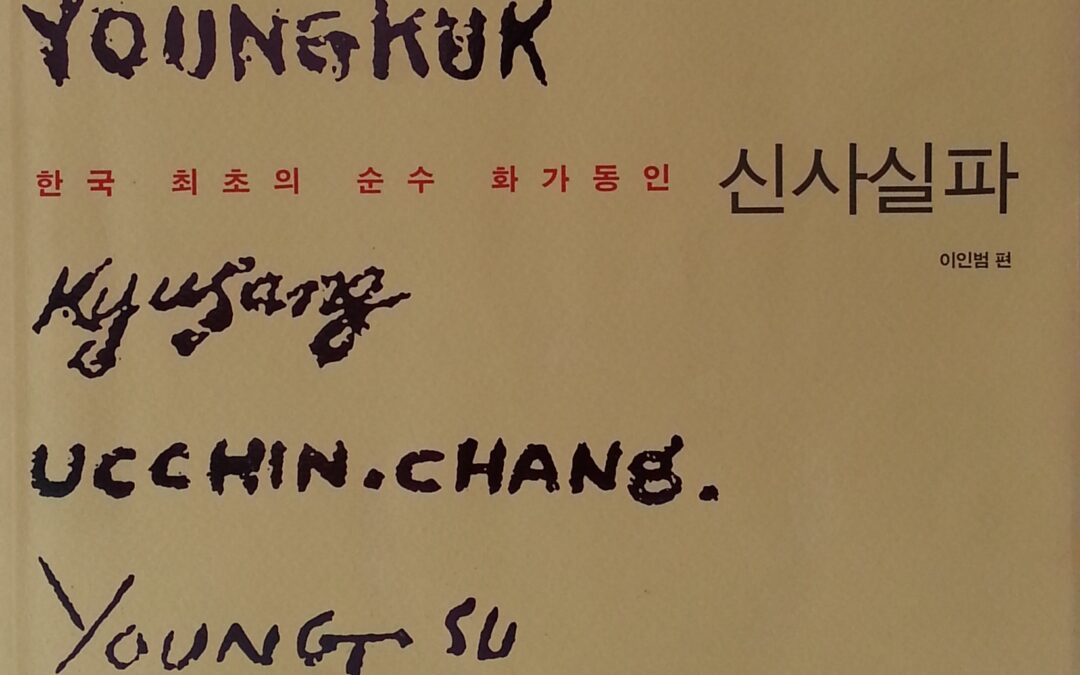 YOUNGKUK
한국 최초의 순수 화가동인 신사실파
이인범 편
Kyusang
UCCHIN.CHANG.
YOUNG SU